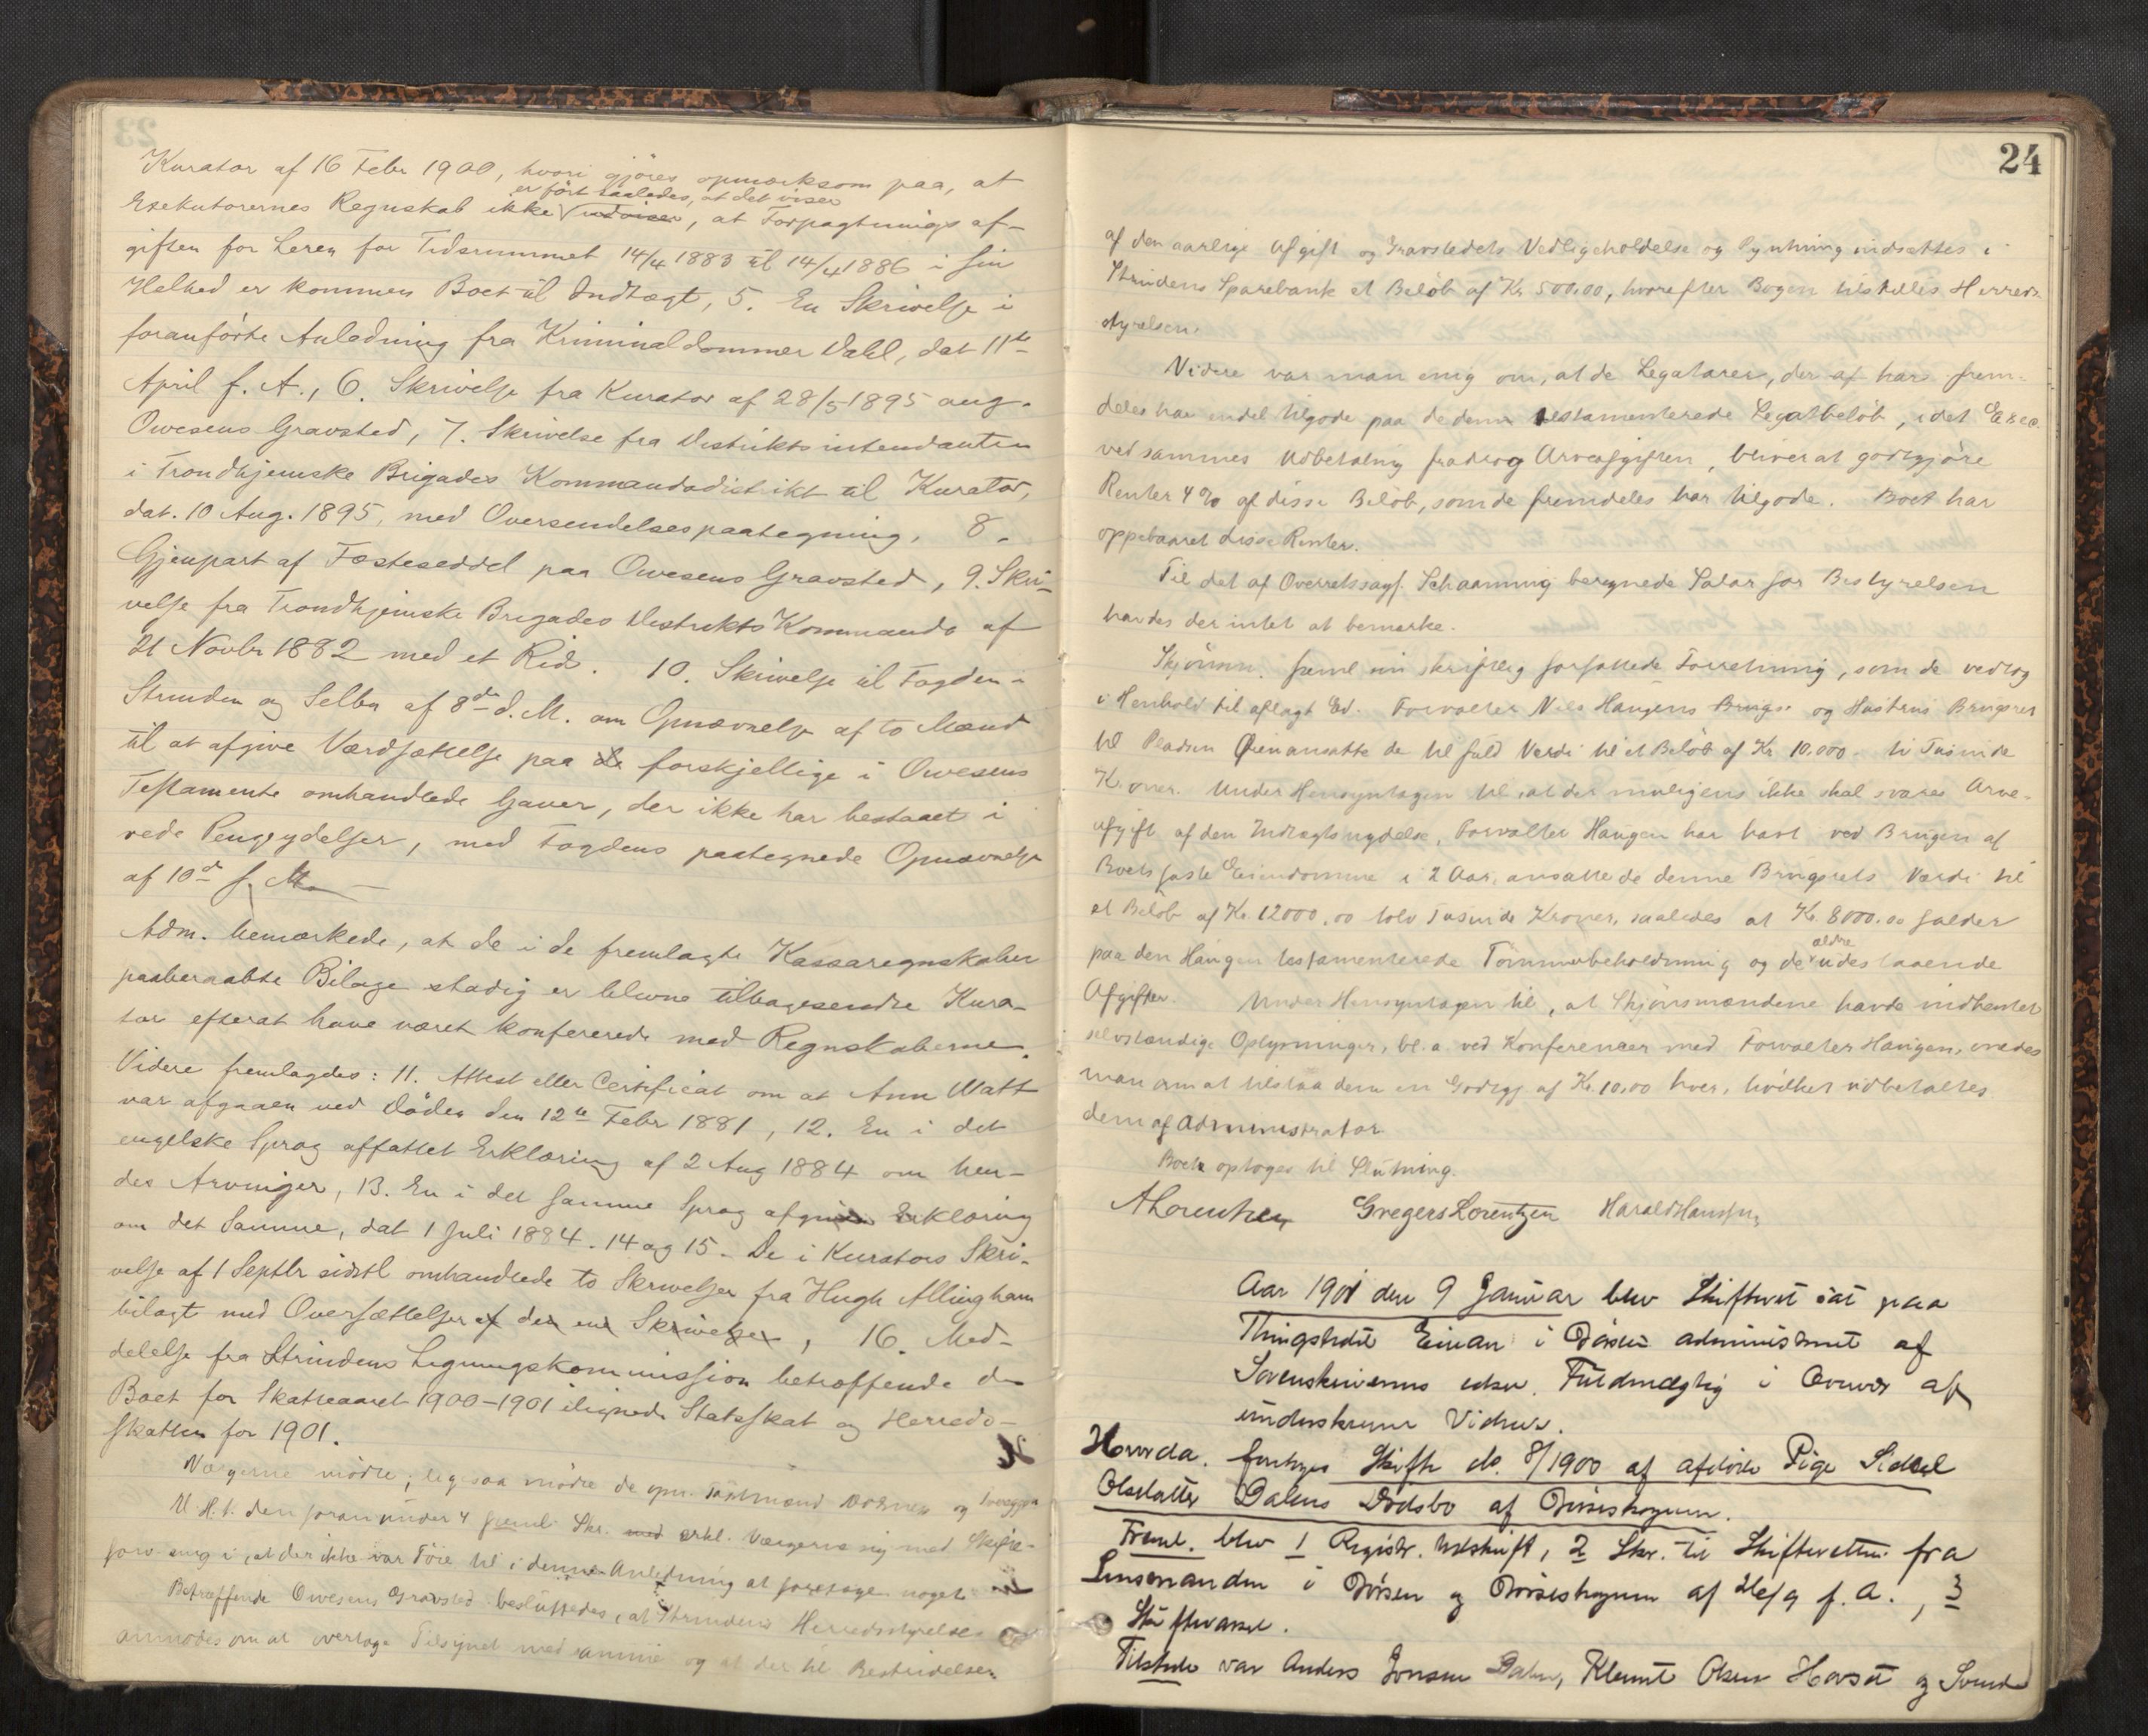 Kurator af 16 Febr 1900, hvori gjöres opmærksom paa, at
er fört saaledes, at det viser
Exekutorernes Regnskab ikke udviser, at Forpagtnings af-
giften for Leren for Tidsrummet 14/4 1883 til 14/4 1886 i sin
Helhed er kommen Boet til Indtægt, 5. En Skrivelse i
foranförte Anledning fra Kriminaldommer Dahl, dat 11te
April f. A., 6. Skrivelse fra Kurator af 28/5 1895 ang.
Owesens Gravsted, 7. Skrivelse fra Distriktsintendanten
i Trondhjemske Brigades Kommandodistrikt til Kurator,
dat. 10 Aug. 1895, med Oversendelsespaategning, 8.
Gjenpart af Fæsteseddel paa Owesens Gravsted, 9. Skri-
velse fra Trondhjemske Brigades Distrikts Kommando af
21 Novbr 1882 med et Rids. 10. Skrivelse til Fogden i
Strinden og Selbu af 8de d. M. om Opnævnelse af to Mænd
til at afgive Værdsættelse paa de forskjellige i Owesens
Testamente omhandlede Gaver, der ikke har bestaaet i
rede Pengeydelser, med Fogdens paategnede Opnævnelse
af 10de s. M.
Adm. bemærkede, at de i de fremlagte Kassaregnskaber
paaberaabte Bilage stadig er blevne tilbagesendte Kura-
tor efterat have været konfererede med Regnskaberne.
Videre fremlagdes: 11. Attest eller Certificat om at Ann Watt
var afgaaen ved Döden den 12te Febr 1881, 12. En i det
engelske Sprog affattet Erklæring af 2 Aug 1884 om hen-
des Arvinger, 13. En i det samme Sprog afgiven Erklæring
om det Samme, dat 1 Juli 1884. 14 og 15. De i Kurators Skri-
velse af 1 Septbr sidstl omhandlede to Skrivelser fra Hugh Allingham
bilagt med Oversættelser af den ene Skrivelse, 16. Med-
delelse fra Strindens Ligningskommission betræffende de
Boet for Skatteaaret 1900-1901 ilignede Statsskat og Herreds-
skatten for 1901.
Værgerne mödte; ligesaa mödte de opn. Skjönsmænd og
U. H. t. den foran under 4 freml. Skr. med erkl. Værgerne sig med Skifte-
forv enig i, at der ikke var Föie til i denne Anledning at foretage noget
Betræffende Owesens Gravsted besluttedes, at Strindens Herredsstyrelse
anmodes om at overtage Tilsynet med samme og at der til Bestridelsen
24
af den aarlige Afgift og Gravstedets Vedligeholdelse og Pyntning indsættes i
Strindens Sparebank et Belöb af Kr 500,00, hvorefter Bogen tilstilles Herreds-
styrelsen.
Videre var man enig om, at de Legatarer, der af har frem-
deles har endel tilgode paa de dem testamenterede Legatbelöb, idet Exec.
ved sammes Udbetaling fradrog Arveafgiften, bliver at godtgjöre
Renter 4 % af disse Belöb, som de fremdeles har tilgode. Boet har
oppebaaret disse Renter.
Til det af Overretssagf. Schaanning beregnede Salar for Bestyrelsen
havdes der intet at bemærke.
Skjönsm. freml sin skriftlig forfattede Forretning, som de vedtog
i Henhold til aflagt Ed. Forvalter Nils Haugens Brugs og Hustrus Brugsret
til Pladsen Öien ansatte de til fuld Værdi til et Belöb af Kr 10,000 ti Tusinde
Kroner. Under Hensyntagen til at der muligens ikke skal svares Arve-
afgift af den Indtægtsnydelse, Forvalter Haugen har havt ved Brugen af
Boets faste Eiendomme i 2 Aar, ansatte de denne Brugsrets Værdi til
et Belöb af Kr. 12000,00 tolv Tusinde Kroner, saaledes at Kr. 8000,00 falder
ældre
paa den Haugen testamenterede Tömmerbeholdning og de udestaaende
Afgifter. Under Hensyntagen til, at Skjönsmændene havde indhentet
selvstændige Oplysninger, bl. a. ved Konferencer med Forvalter Haugen, enedes
man om at tilstaa dem en Godtgj af Kr. 10,00 hver, hvilket udbetaltes
dem af Administrator.
Boet optoges til Slutning.
A Lorentzen Gregers Lorentzen Harald Hanssen
Aar 1901 den 9 Januar blev Skifteret sat paa
Thingstedet Einan i Börsen administreret af
Sorenskriverens edsv. Fuldmægtig i Overvær af
underskrevne Vidner.
Hvorda. foretoges Skifte No. 8/1900 af afdöde Pige Sidsel
Olsdatter Dalens Dödsbo af Börseskognen.
Freml. blev 1 Registr. Udskrift, 2 Skr. til Skifteretten fra
Lensmanden i Börsen og Börseskognen af 26/9 f. A., 3
Skiftevarsel.
Tilstede var Anders Jonsen Dalen, Klemet Olsen Hovset og Svend